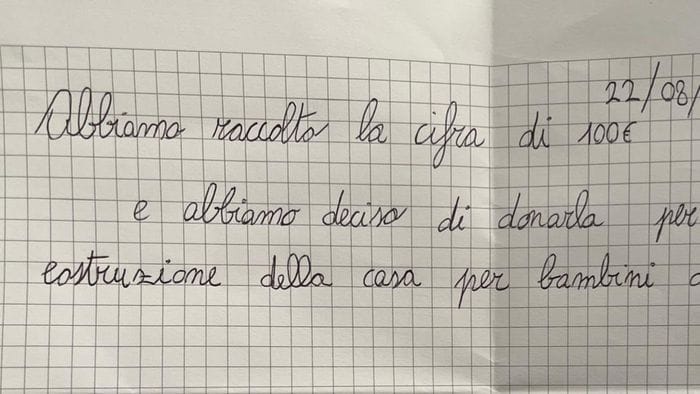 22/08/
Abbiamo raccolto la cifra di 100€
e abbiamo deciso di donarla per
costruzione della casa per bambini